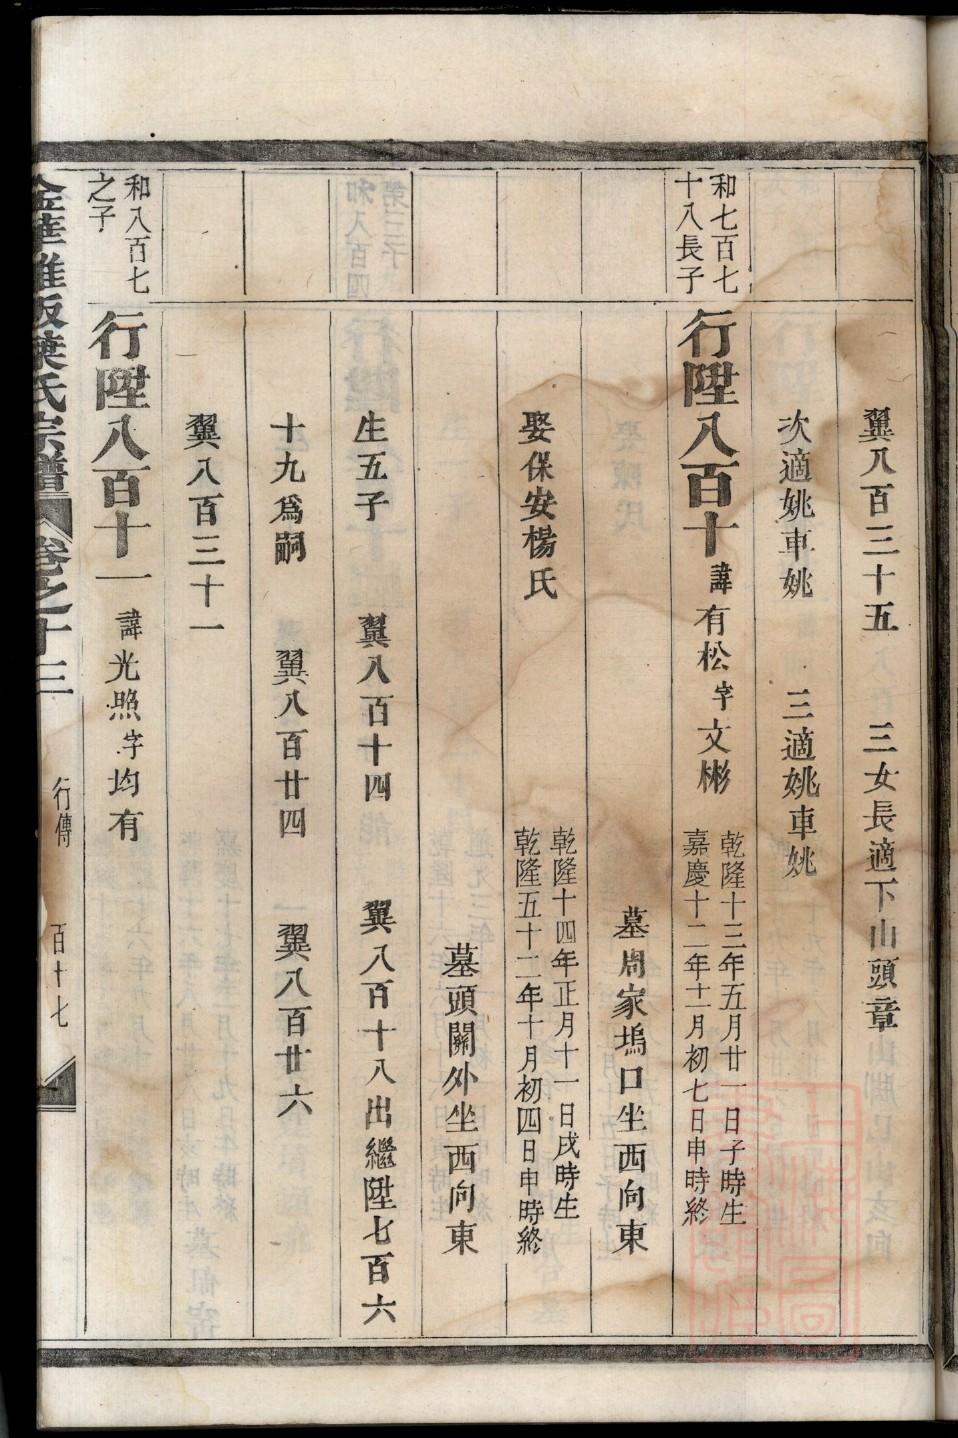 翼八百三十五　三女長適下山頭章
次適姚車姚　三適姚車姚
和七百七
十八長子
行陞八百十 諱有松字文彬
乾隆十三年五月廿一日子時生
嘉慶十二年十一月初七日申時終
墓周家塢口坐西向東
娶保安楊氏
乾隆十四年正月十一日戌時生
乾隆五十二年十月初四日申時終
墓頭關外坐西向東
生五子　翼八百十四　翼八百十八出繼陞七百六
十九爲嗣　翼八百廿四　翼八百廿六
翼八百三十一
和八百七
之子
行陞八百十一 諱光照字均有
葉氏宗譜 卷之十三 行傳 百十七